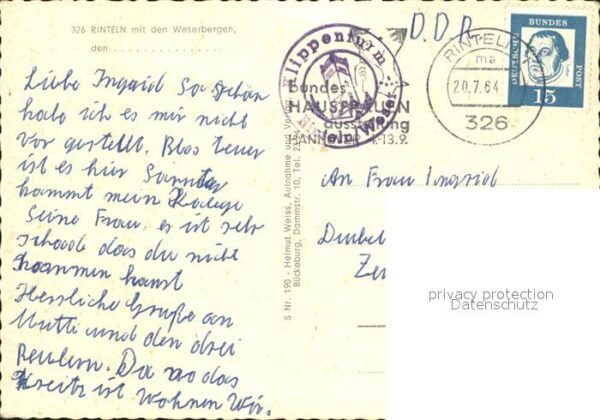 326 RINTELN mit den Weserbergen,
den ...............
Liebe Ingrid So schön
habe ich es mir nicht
vor gestellt. Blos teuer
ist es hier Sonntag
kommt mein Kolege
Seine Frau, es ist sehr
schade das du nicht
kommen kanst
Herzliche Grüße an
Mutti und den drei
Da wo das
Kreitz ist Wohnen Wir.
S Nr. 190 - Helmut Weiss, Aufnahme und Verlag
Bückeburg, Dammstr. 10, Tel.
Klippenturm
Rinteln Weser
bundes
HAUSFRAUEN
ausstellung
HANNOVER 4.-13.9.
D.D.R.
RINTELN
ma
20.7.64
326
DEUTSCHE
BUNDES
POST
15
An Frau Ingrid
privacy protection
Datenschutz